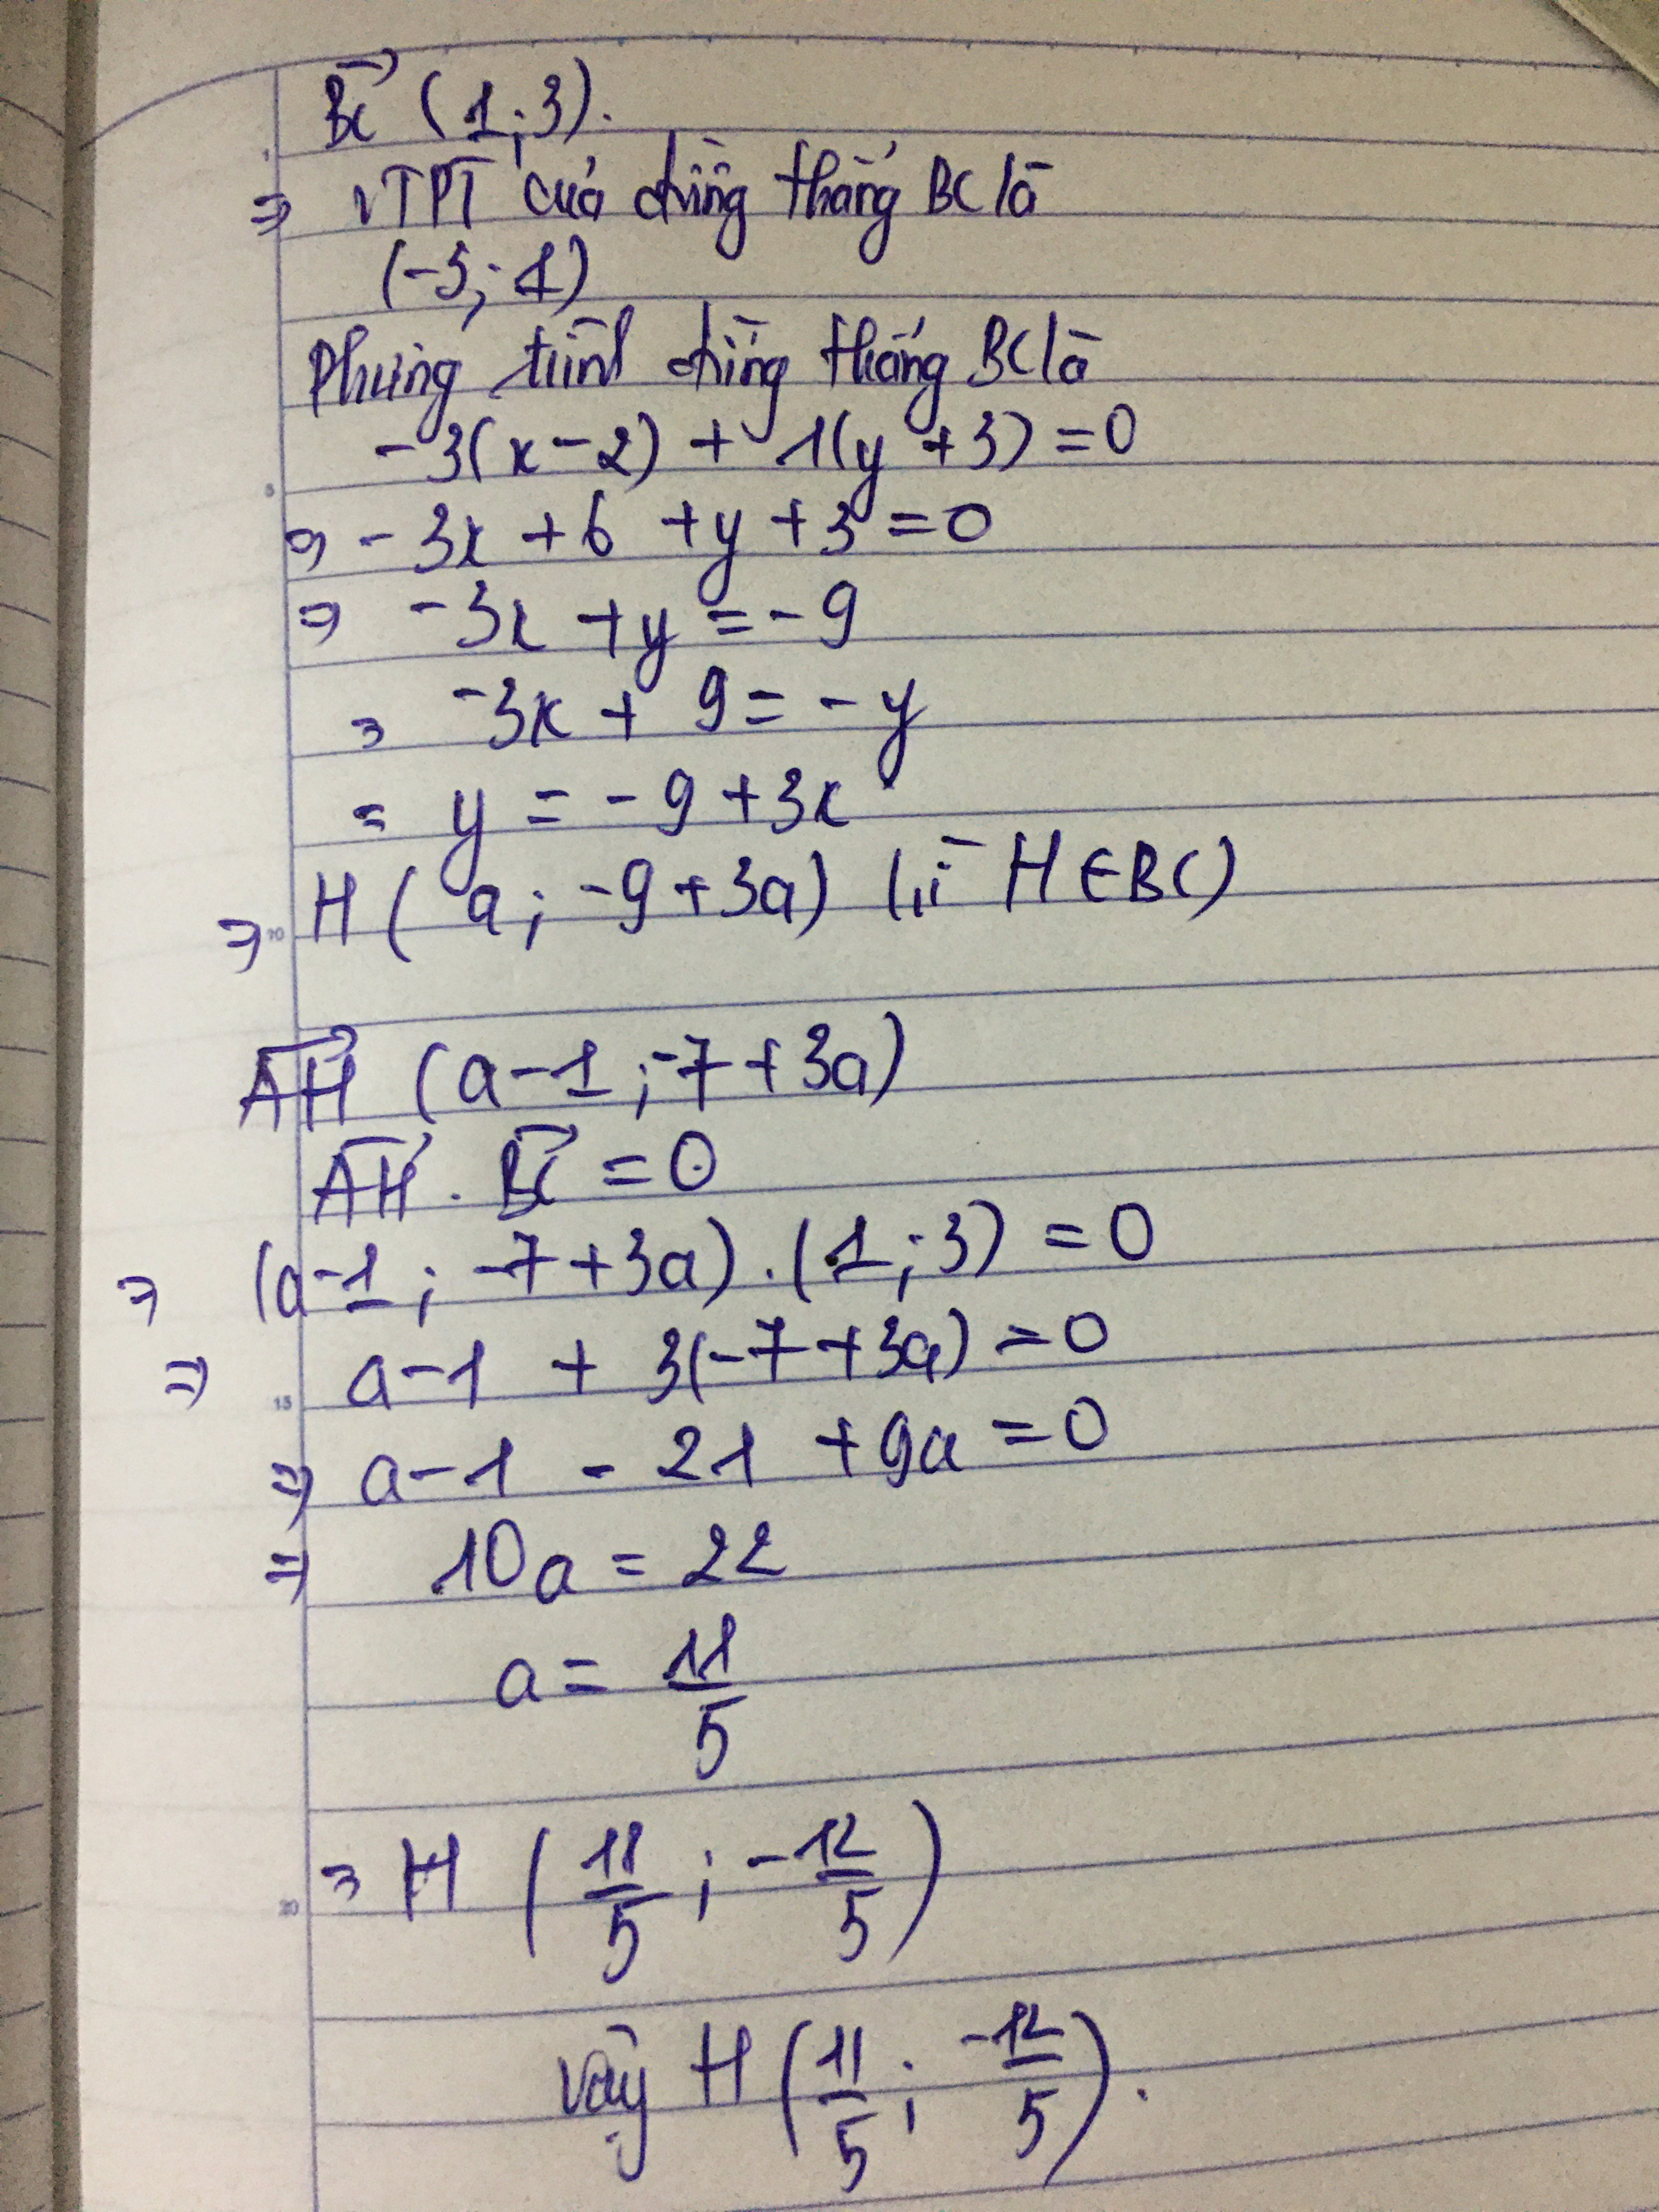 BC (1;3).
⇒ VTPT của đường thẳng BC là
(-3; 1)
Phương trình đường thẳng BC là
-3(x-2) + 1(y+3) = 0
⇒ -3x + 6 + y + 3 = 0
⇒ -3x + y = -9
⇒ -3x + 9 = -y
= y = -9 + 3x
⇒ H ( a; -9 + 3a) (vì H ∈ BC)
AH (a-1; -7 + 3a)
AH . BC = 0
⇒ (a-1; -7 + 3a) . (1; 3) = 0
⇒ a-1 + 3(-7 + 3a) = 0
⇒ a-1 - 21 + 9a = 0
⇒ 10a = 22
a = 11/5
⇒ H (11/5; -12/5)
Vậy H (11/5; -12/5).